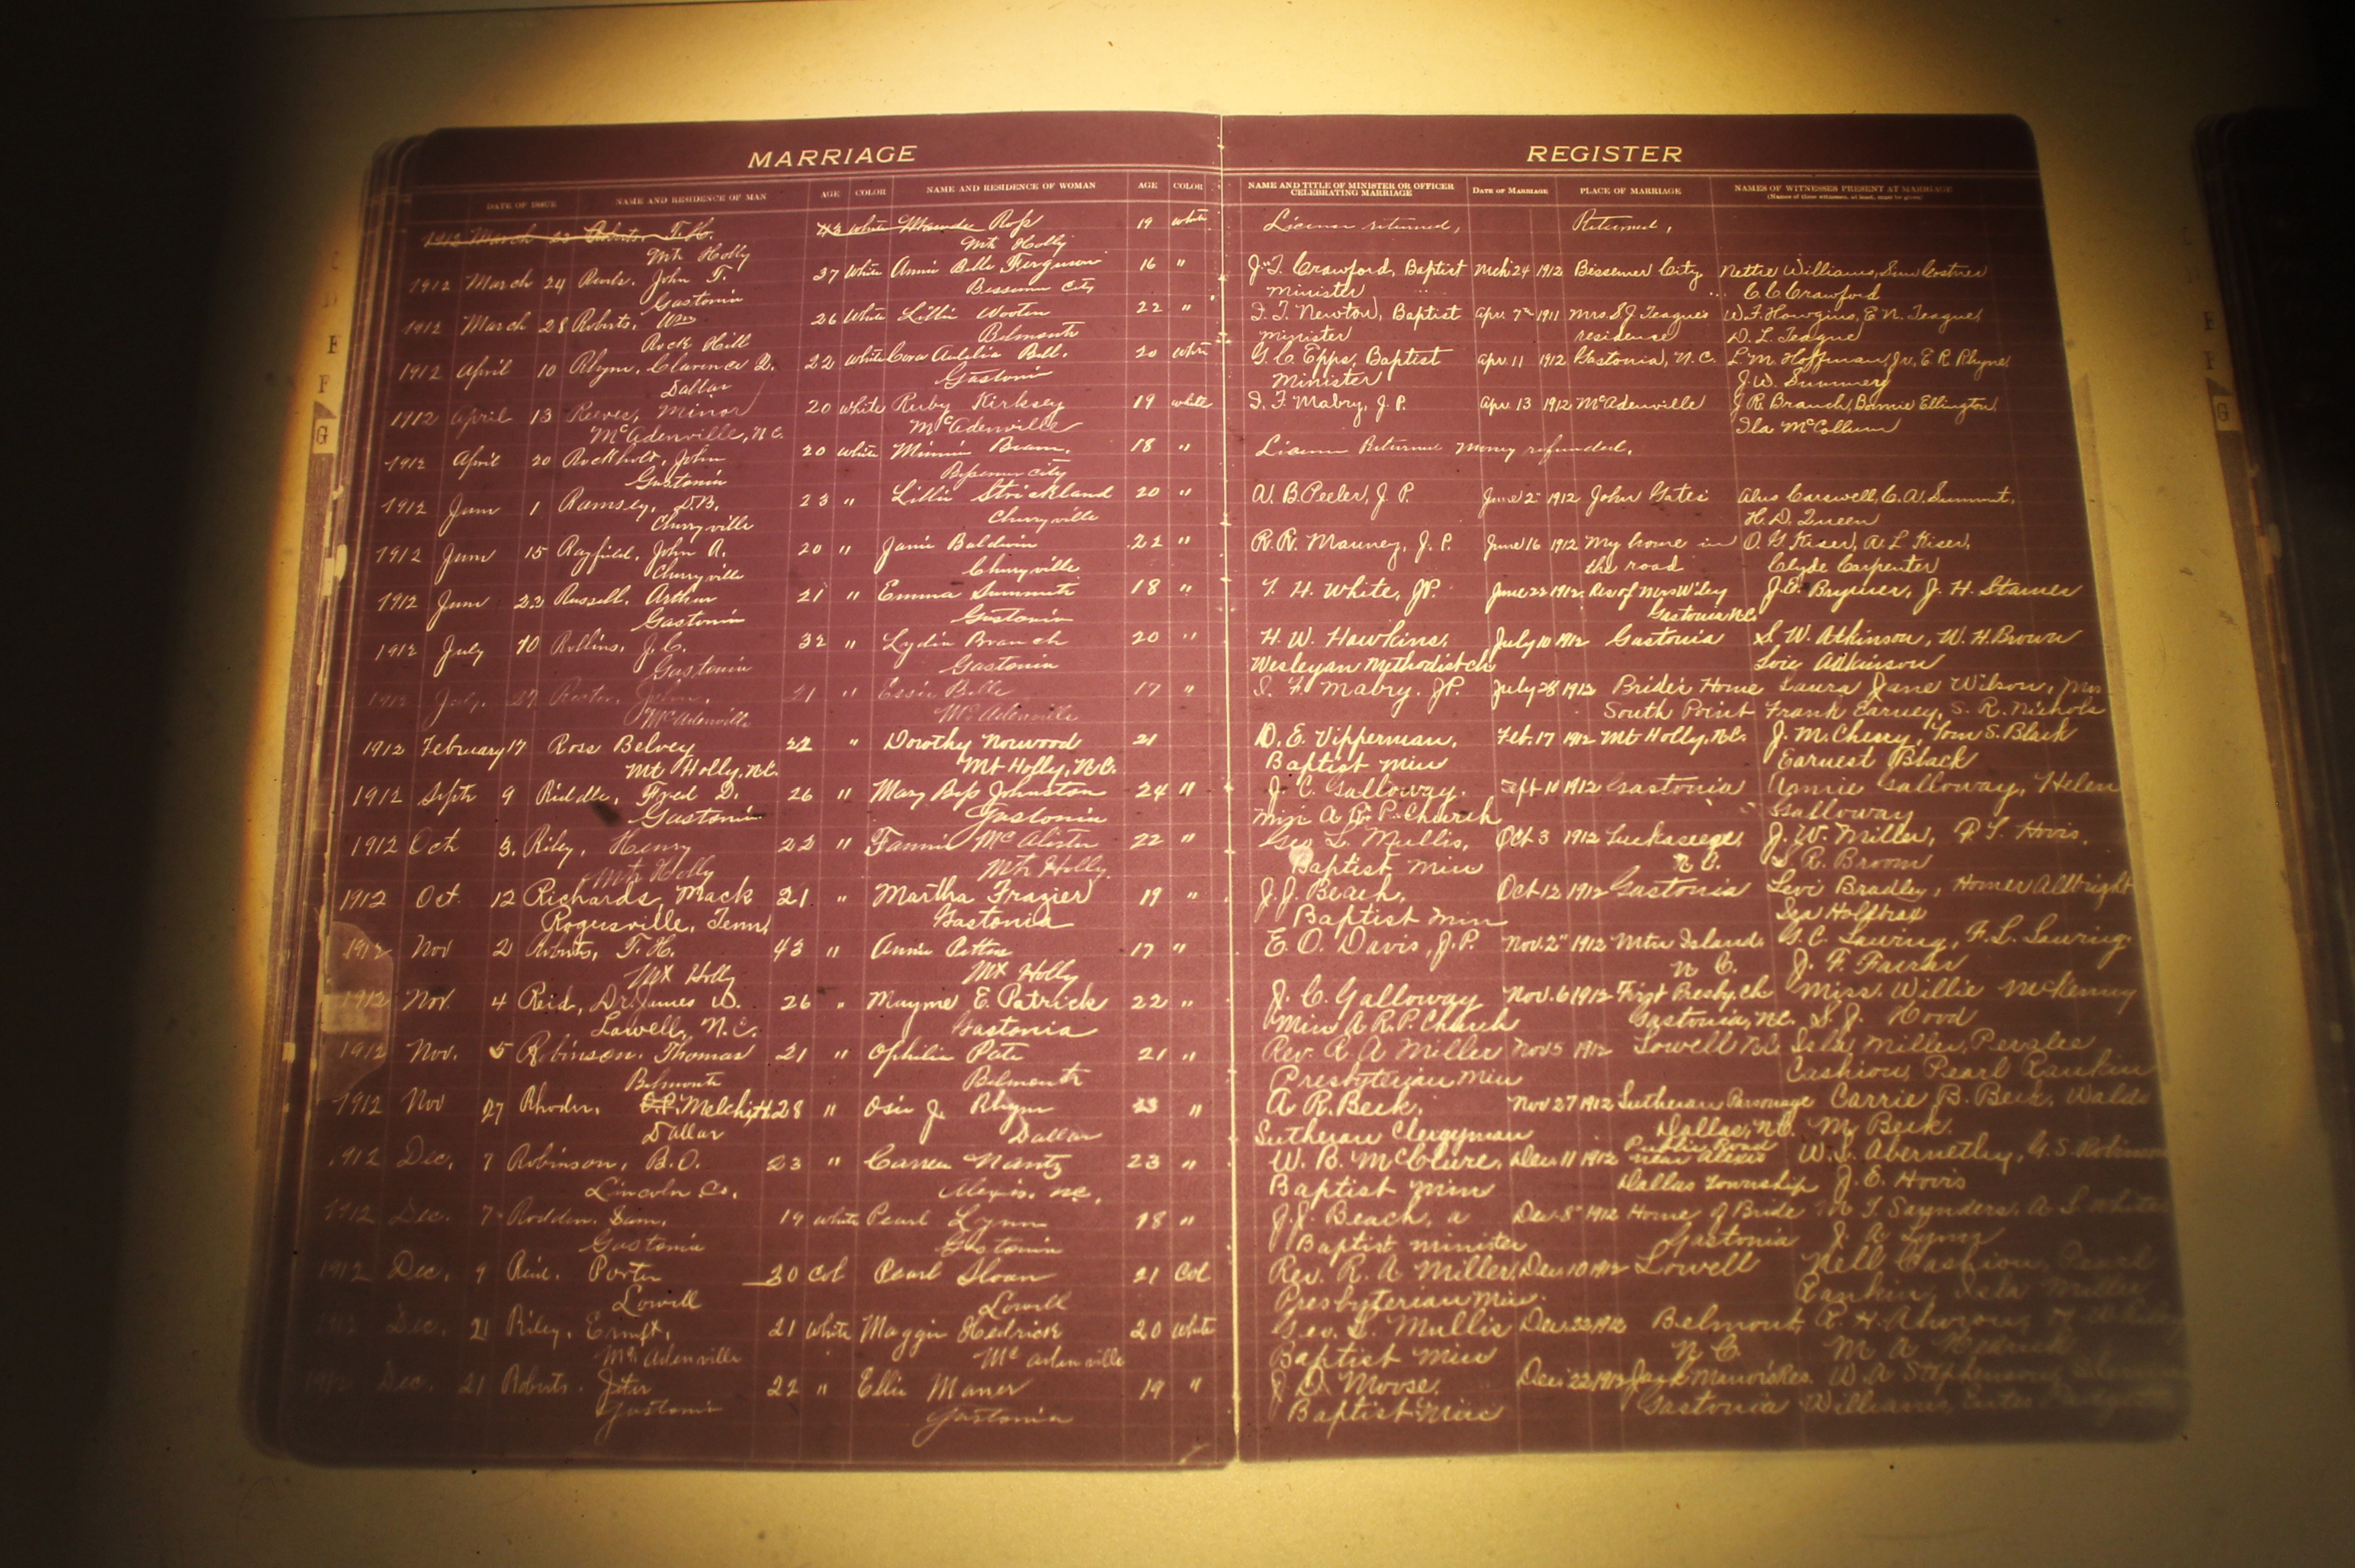 MARRIAGE REGISTER
DATE OF ISSUE NAME AND RESIDENCE OF MAN AGE COLOR NAME AND RESIDENCE OF WOMAN AGE COLOR NAME AND TITLE OF MINISTER OR OFFICER CELEBRATING MARRIAGE DATE OF MARRIAGE PLACE OF MARRIAGE NAMES OF WITNESSES PRESENT AT MARRIAGE
(Names of three witnesses, at least, must be given)
1912 March 23 Roberts, T. H. 43 white Maude Ross 19 white License returned, Returned,
Mt Holly Mt Holly
1912 March 24 John T. 37 White Annie Belle Ferguson 16 " J. T. Crawford, Baptist Mch 24 1912 Bessemer City Nettie Williams, Sue Costner
Gastonia Bessemer City minister C. C. Crawford
1912 March 28 Roberts, Wm 26 White Lillie Wooten 22 " Newton, Baptist Apr. 7th 1911 Mrs S J Teague's W. F. Howgins, E. N. Teague,
Rock Hill Belmont minister residence D. L. Teague
1912 April 10 Rhyne, Clarence D. 22 white Cora Bell. 20 white G. C. Epps, Baptist Apr. 11 1912 Gastonia, N. C. L. M. Hoffman, Jr., E. R. Rhyne
Dallas Gastonia Minister J. W. Summery
1912 April 13 Reeves, Minor 20 white Ruby Kirksey 19 white Mabry, J. P. Apr. 13 1912 McAdenville J. R. Branch, Bonnie Ellington,
McAdenville, N.C. McAdenville Ila McCollum
1912 April 20 Rockholt, John 20 white Minnie Beam. 18 " License Returned money refunded.
Gastonia Bessemer City
1912 June 1 Ramsey, D.B. 23 " Lillie Strickland 20 " A. B. Peeler, J. P. June 2" 1912 John Gates Carswell, C. A. Summit,
Cherryville Cherryville H. D. Queen
1912 June 15 Rayfield, John A. 20 " Janie Baldwin 22 " R. R. Mauney, J. P. June 16 1912 My home in O. G Kiser, A. L Kiser,
Cherryville Cherryville the road Clyde Carpenter
1912 June 22 Russell, Arthur 21 " Emma Summit 18 " T. H. White, JP. June 22 1912 Res of Mrs Wiley J. E. Brymer, J. H. Starnes
Gastonia Gastonia Gastonia N.C.
1912 July 10 Rollins, J. C. 32 " Lydia Branch 20 " H. W. Hawkins, July 10 1912 Gastonia S. W. Atkinson, W. H. Brown
Gastonia Gastonia Wesleyan Methodist ch Adkinson
1912 July, 27 John. 21 " Essie Belle 17 " Mabry. JP. July 28 1912 Bride's Home Laura Jane Wilson, Mrs
McAdenville McAdenville South Point Frank Earney, S. R. Nichols
1912 February 17 Ross Belvey 22 " Dorothy Norwood 21 D. E. Vipperman, Feb. 17 1912 Mt Holly, N.C. J. M. Cherry, Tom S. Black
Mt Holly, N.C. Mt Holly, N.C. Baptist Min Earnest Black
1912 Sept 9 Riddle, Fred D. 26 " Mary Bess Johnston 24 " J. C. Galloway. Sept 10 1912 Gastonia Annie Galloway, Helen
Gastonia Gastonia Min A. R. P. Church Galloway
1912 Oct 3. Riley, Henry 22 " Fannie McAlister 22 " Geo L. Mullis, Oct 3 1912 Tuckaseege, J. W. Miller, Hovis,
Mt Holly Mt Holly. Baptist Min N. C. S. R. Broom
1912 Oct. 12 Richards, Mack 21 " Martha Frazier 19 " J. J. Beach, Oct 12 1912 Gastonia Levi Bradley, Homer Allbright
Rogersville, Tenn, Gastonia Baptist Min
1912 Nov 2 Roberts, T. H. 43 " Annie 17 " E. O. Davis, J. P. Nov. 2" 1912 Mtn Island, G. C. Lawing, F. L. Lawing.
Mt Holly Mt Holly N C. J. F.
1912 Nov. 4 Reid, Dr. James W. 26 " Mayme E. Patrick 22 " J. C. Galloway Nov. 6 1912 First Presby. Ch Miss. Willie McKenny
Lowell, N. C. Gastonia Min A R. P. Church Gastonia, N.C. S. J. Hood
1912 Nov. 5 Robinson. Thomas 21 " Ophelia Pate 21 " Rev. R. A Miller Nov 5 1912 Lowell N C Isla Miller,
Belmont Belmont Presbyterian Min Cashion, Pearl Rankin
1912 Nov 27 Rhodes, 28 " Osie J. Rhyne 23 " A. R. Beck, Nov 27 1912 Lutheran Parsonage Carrie B. Beck,
Dallas Dallas Lutheran Clergyman Dallas, N.C. M. Beck.
1912 Dec. 7 Robinson, B. O. 23 " Nantz 23 " W. B. McClure, Dec. 11 1912 Public Road near Alexis W. L. Abernethy, G. S. Robinson
Lincoln Co. Alexis. N.C. Baptist Min Dallas Township J. E. Hovis
1912 Dec. 7 Rodden. Sam, 19 white Pearl Lynn 18 " J. J. Beach, a Dec. 8" 1912 Home of Bride T. Saunders, A. L. White
Gastonia Gastonia Baptist minister Gastonia J. A. Lynn
1912 Dec. 9 Reid. Porter 20 Col Pearl Sloan 21 Col Rev. R. A Miller, Dec 10 1912 Lowell Nell Cashion, Pearl
Lowell Lowell Presbyterian Min. Rankin, Isla Miller
1912 Dec. 21 Riley, Ernest, 21 White Maggie Hedrick 20 White Geo. L. Mullis Dec. 22, 1912 Belmont,
McAdenville McAdenville Baptist Min N C. M A Hedrick
1912 Dec. 21 Roberts. Jeter 22 " Ellie Maner 19 " J. D. Moose. Dec. 22, 1912 W. A Stephenson,
Gastonia Gastonia Baptist Min Gastonia Williams,
F
F
G
G